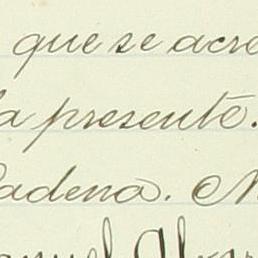 que se acre
la presente.
Cadena. M
anuel Alva